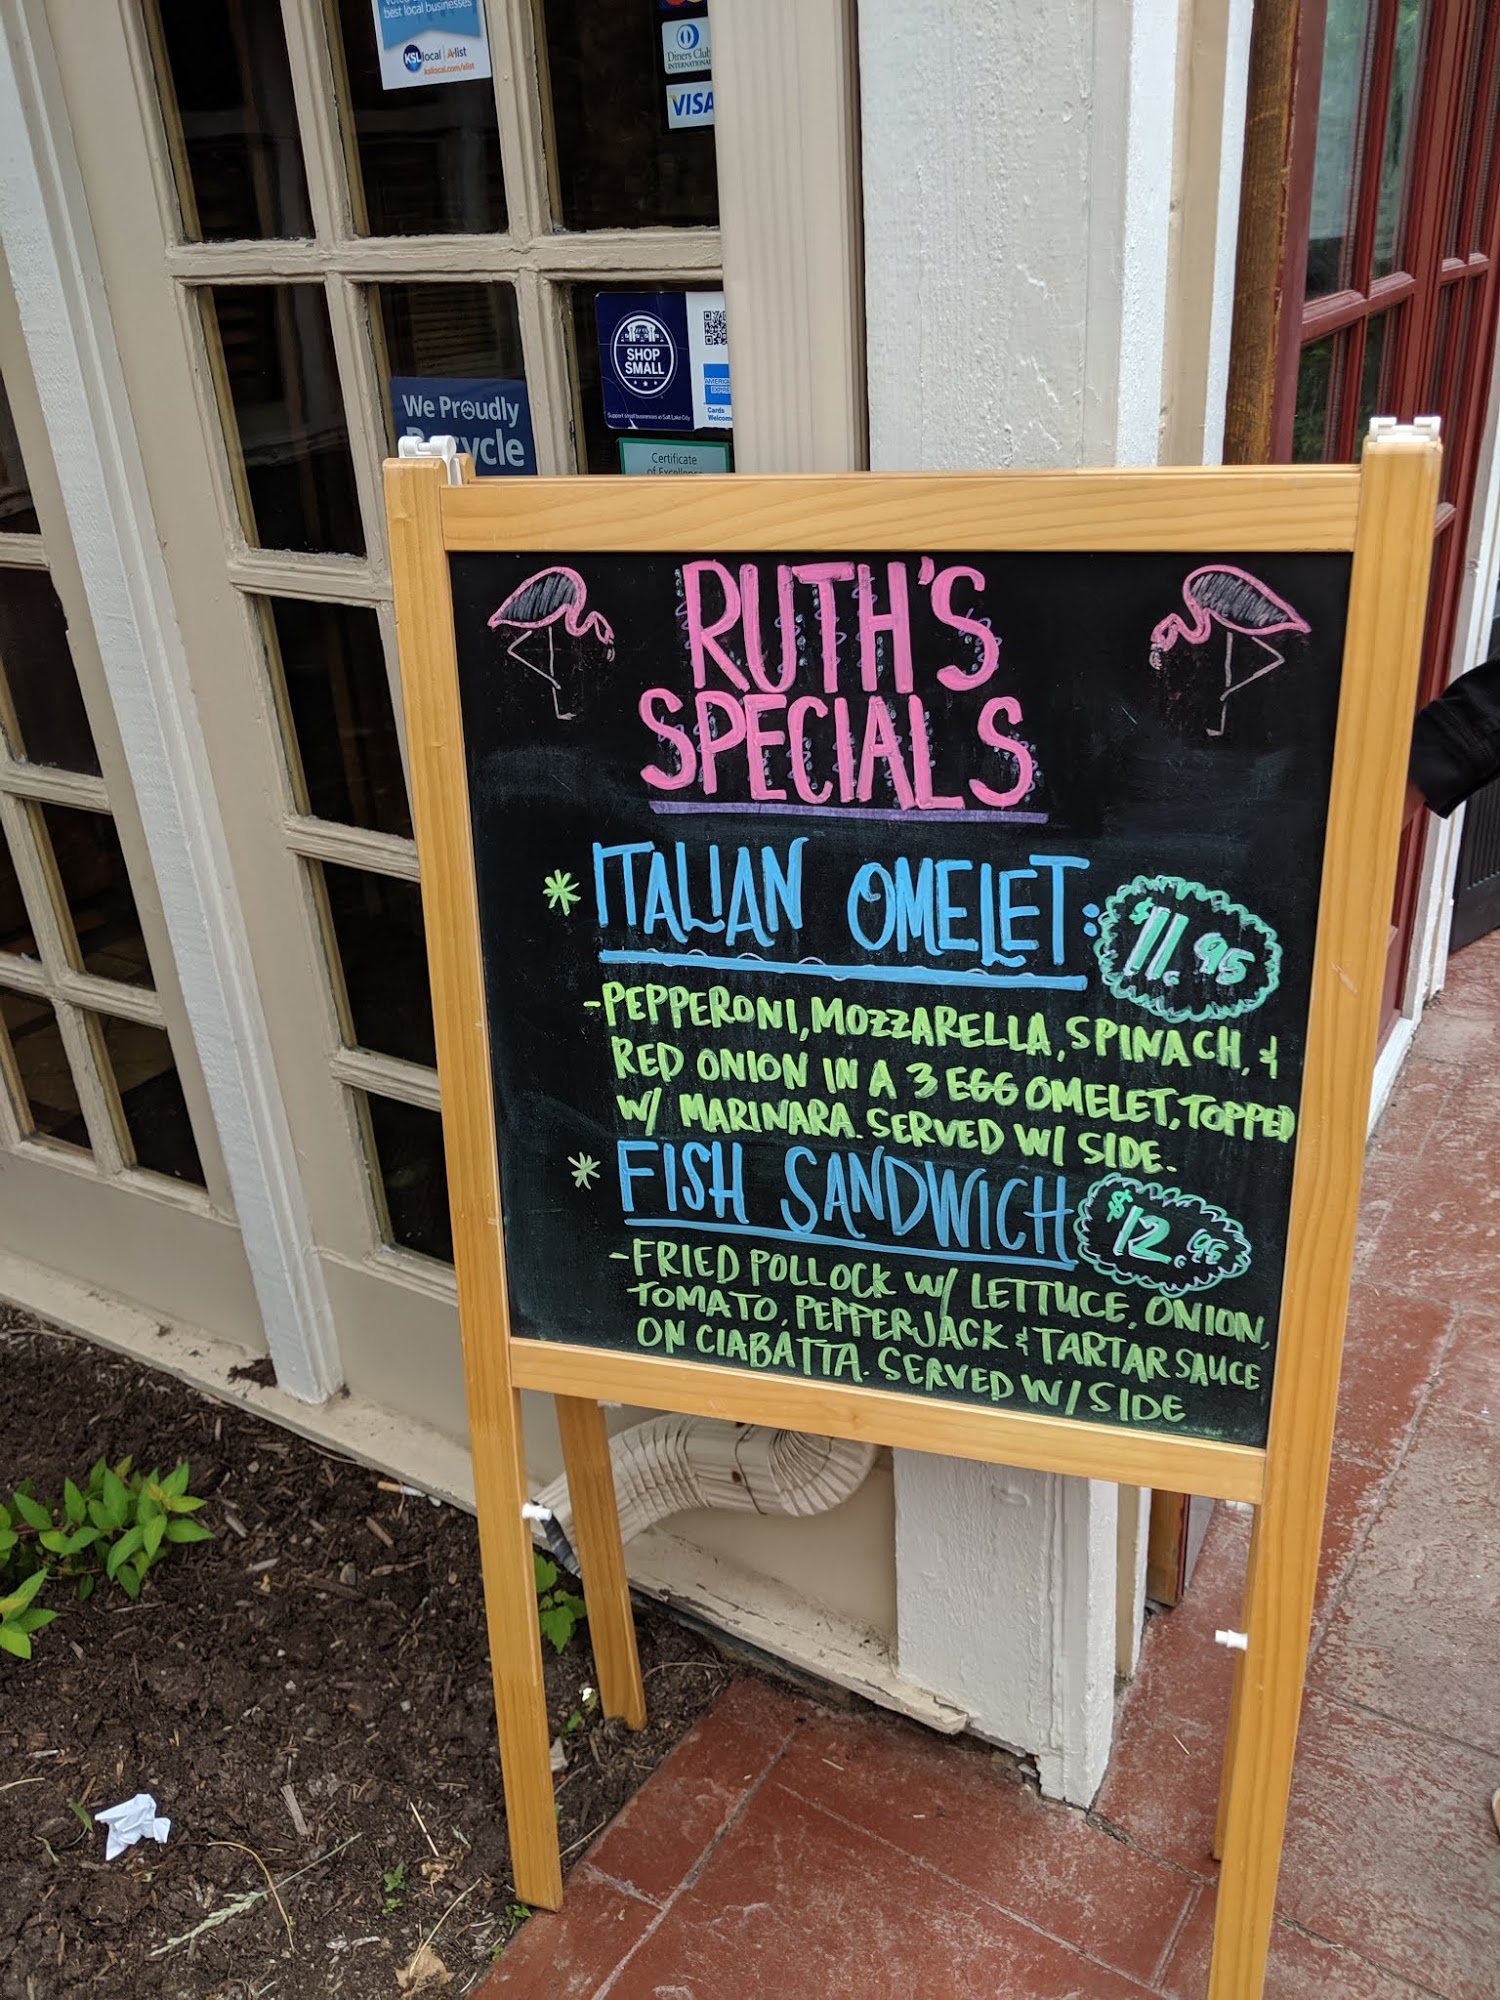 best local businesses
KSL local | A-list
ksllocal.com/alist
Diners Club
INTERNATIONAL
VISA
SHOP
SMALL
Support small businesses in Salt Lake City
Cards
We Proudly
Certificate
of Excellence
RUTH'S
SPECIALS
* ITALIAN OMELET: $11.95
-PEPPERONI, MOZZARELLA, SPINACH, &
RED ONION IN A 3 EGG OMELET, TOPPED
W/ MARINARA. SERVED W/ SIDE.
* FISH SANDWICH $12.95
-FRIED POLLOCK W/ LETTUCE, ONION,
TOMATO, PEPPERJACK & TARTAR SAUCE
ON CIABATTA. SERVED W/ SIDE